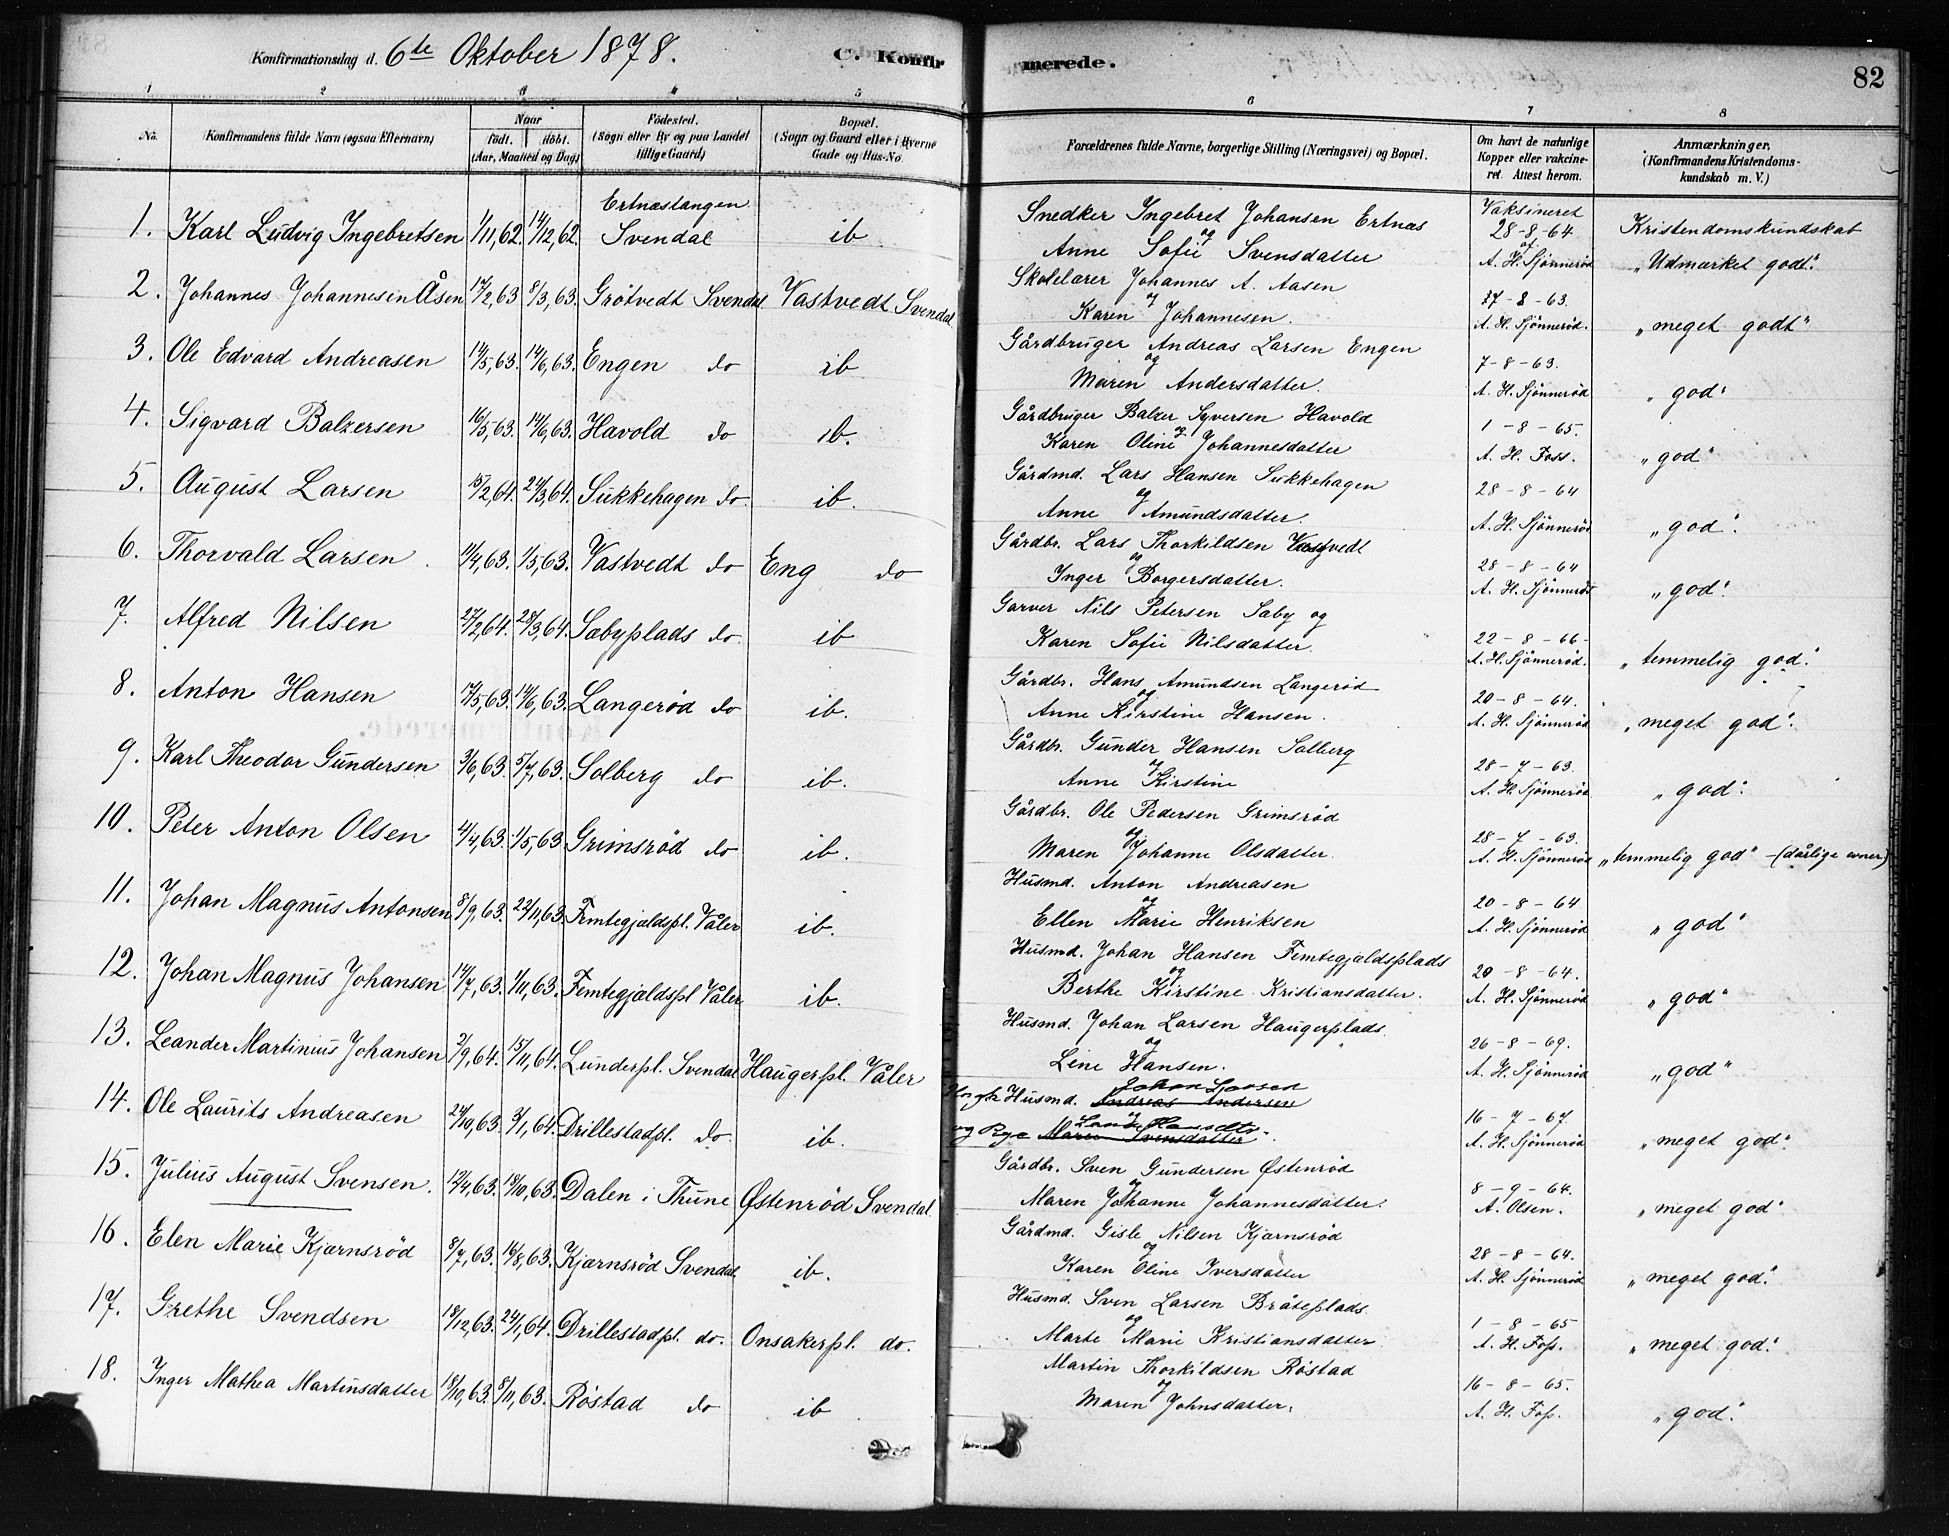 Konfirmationsdag d. 6te Oktober 1878. C. Konfirmerede. 82
1 2 3 4 5 6 7 8
No. Konfirmandens fulde Navn (ogsaa Efternavn) Naar födt. döbt. (Aar, Maaned og Dag) Födested. (Sogn eller By og paa Landet tillige Gaard) Bopæl. (Sogn og Gaard eller i Byerne Gade og Hus-No. Forældrenes fulde Navne, borgerlige Stilling (Næringsvei) og Bopæl. Om havt de naturlige Kopper eller vakcineret. Attest herom. Anmærkninger. (Konfirmandens Kristendomskundskab m. V.)
1. Karl Ludvig Ingebretsen 1/11,62. 14/12,62. Ertnæstangen Svendal ib Snedker Ingebret Johansen Ertnæs og Anne Sofie Svensdatter Vaksineret 28-8-64 af A. H. Sjönneröd Kristendomskundskab "Udmærket godt."
2. Johannes Johannesen Åsen 17/2,63 8/3,63. Grötvedt Svendal Vastvedt Svendal Skolelærer Johannes A. Aasen og Karen Johannesen. 17-8-63. A. H. Sjönneröd. "meget godt"
3. Ole Edvard Andreasen 14/5,63. 14/6,63. Engen do ib Gårdbruger Andreas Larsen Engen og Maren Andersdatter. 7-8-63. A. H. Sjönneröd "god"
4. Sigvard Balzersen 16/5,63. 14/6,63. Havold do ib. Gårdbruger Balzer Syversen Havold og Karen Oline Johannesdatter 1-8-65. A. H. Foss. "god"
5. August Larsen 15/2,64. 24/3,64. Sukkehagen do. ib. Gårdmd. Lars Hansen Sukkehagen og Anne Amundsdatter. 28-8-64 A. H. Sjönneröd "god".
6. Thorvald Larsen. 11/4,63. 1/5,63. Vastvedt do Eng do Gårdbr. Lars Thorkildsen Vastvedt og Inger Borgersdatter. 28-8-64 A. H. Sjönneröd "god".
7. Alfred Nilsen 27/2,64. 28/3,64. Sabyplads do. ib Garver Nils Petersen Saby og Karen Sofie Nilsdatter. 22-8-66- A. H. Sjönneröd. "temmelig god".
8. Anton Hansen 17/5,63. 14/6,63. Langeröd do ib. Gårdbr. Hans Amundsen Langeröd og Anne Kirstine Hansen. 20-8-64. A. H. Sjönneröd "meget god".
9. Karl Theodor Gundersen 3/6,63. 5/7,63. Solberg do ib. Gårdbr. Gunder Hansen Solberg og Anne Kirstine 28-7-63. A. H. Sjönneröd "god".
10. Peter Anton Olsen 4/4,63. 1/5,63 Grimsröd do ib. Gårdbr. Ole Pedersen Grimsröd og Maren Johanne Olsdatter. 28-7-63. A. H. Sjönneröd "temmelig god" - (dårlige evner)
11. Johan Magnus Antonsen 8/9,63. 22/11,63. Femtegjældspl. Våler ib. Husmd. Anton Andreasen og Ellen Marie Henriksen 20-8-64 A. H. Sjönneröd "god"
12. Johan Magnus Johansen 14/7,63. 1/11,63. Femtegjældspl Våler ib. Husmd. Johan Hansen Femtegjældsplads og Berthe Kirstine Kristiansdatter. 20-8-64. A. H. Sjönneröd "god"
13. Leander Martinius Johansen 2/9,64. 15/11,64. Lunderpl. Svendal Haugerpl. Våler Husmd. Johan Larsen Haugerplads. og Line Hansen. 26-8-69. A. H. Sjönneröd "god"
14. Ole Laurits Andreasen 24/10,63. 3/1,64. Drillestadpl. do. ib. Husmd. Andreas Andersen og Maren Svensdatter. 16-7-67. A. H. Sjönneröd "meget god".
15. Julius August Svensen. 12/4,63. 18/10,63. Dalen i Thune Østenröd Svendal. Gårdbr. Sven Gundersen Østenröd og Maren Johanne Johannesdatter. 8-9-64. A. Olsen. "meget god"
16. Elen Marie Kjærnsröd 8/7,63. 16/8,63. Kjærnsröd Svendal ib. Gårdmd. Gisle Nilsen Kjærnsröd og Karen Oline Iversdatter 28-8-64. A. H. Sjönneröd "meget god".
17. Grethe Svendsen 18/12,63. 24/1,64. Drillestadpl. do. Onsakerpl. do. Husmd. Sven Larsen Bråteplads. og Marte Marie Kristiansdatter 1-8-65 A. H. Foss. "meget god".
18. Inger Mathea Martinsdatter 18/10,63. 8/11,63. Röstad do ib Martin Thorkildsen Röstad og Maren Johnsdatter. 16-8-65. A. H. Foss. "god".